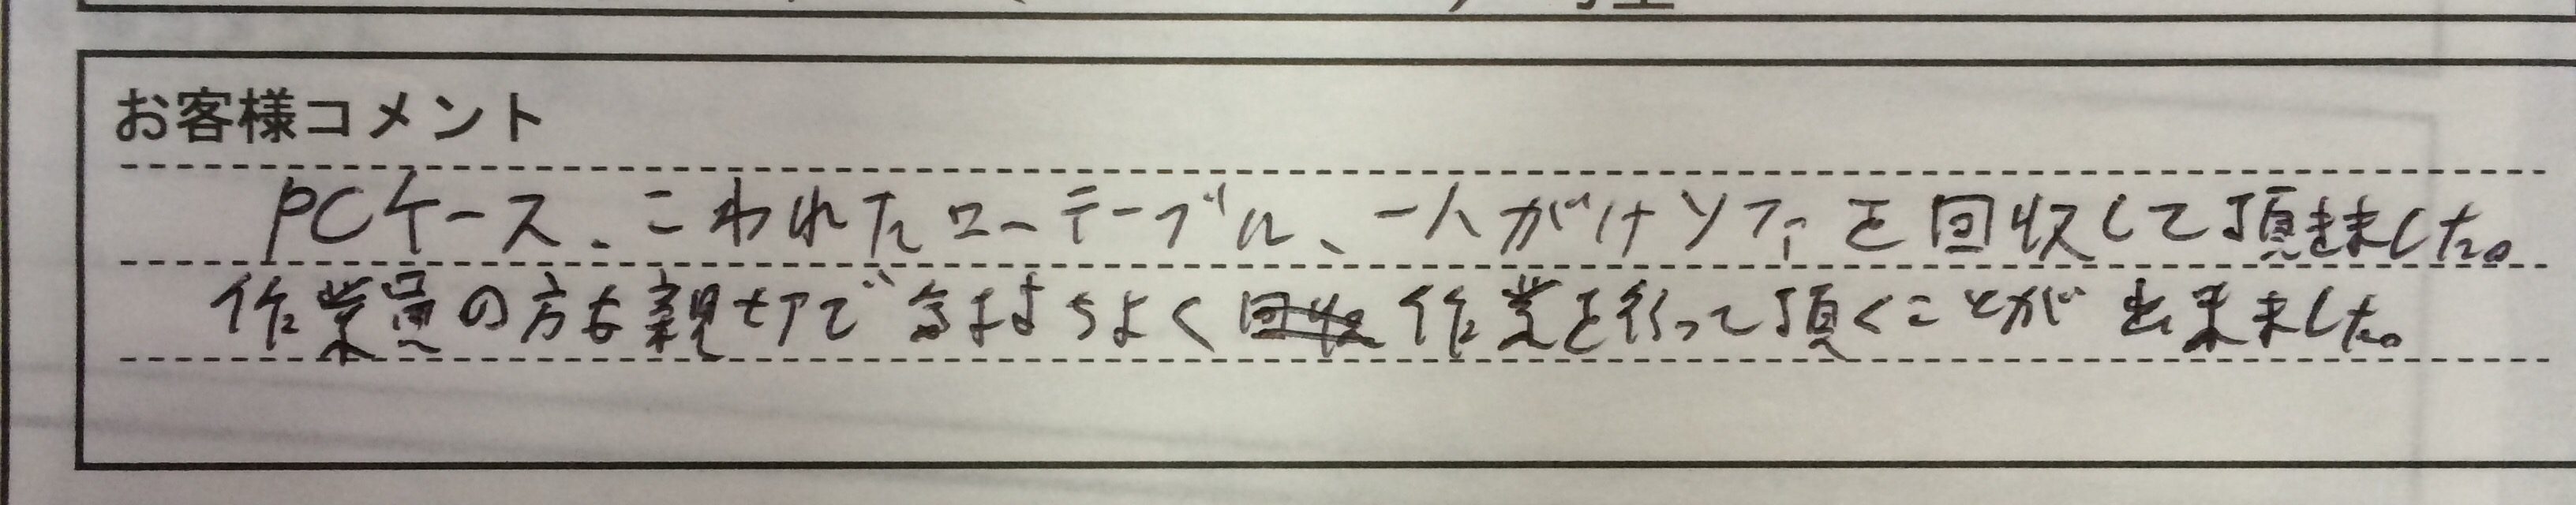 お客様コメント
PCケース、こわれたローテーブル、一人がけソファを回収して頂きました。
作業員の方も親切できもちよく作業を行って頂くことが出来ました。